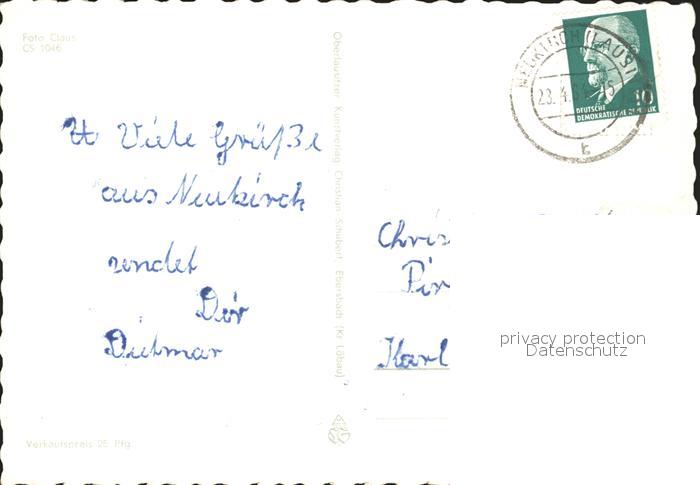 Foto Claus
CS 1046
NEUKIRCH (LAUSITZ)
23. 4. 6
10
DEUTSCHE
DEMOKRATISCHE REPUBLIK
Viele Grüße
aus Neukirch
sendet
Dir
Dietmar
Oberlausitzer Kunstverlag Christian Schubert, Ebersbach (Kr. Löbau)
Chris
Pir
Karl
privacy protection
Datenschutz
Verkaufspreis 25 Pfg